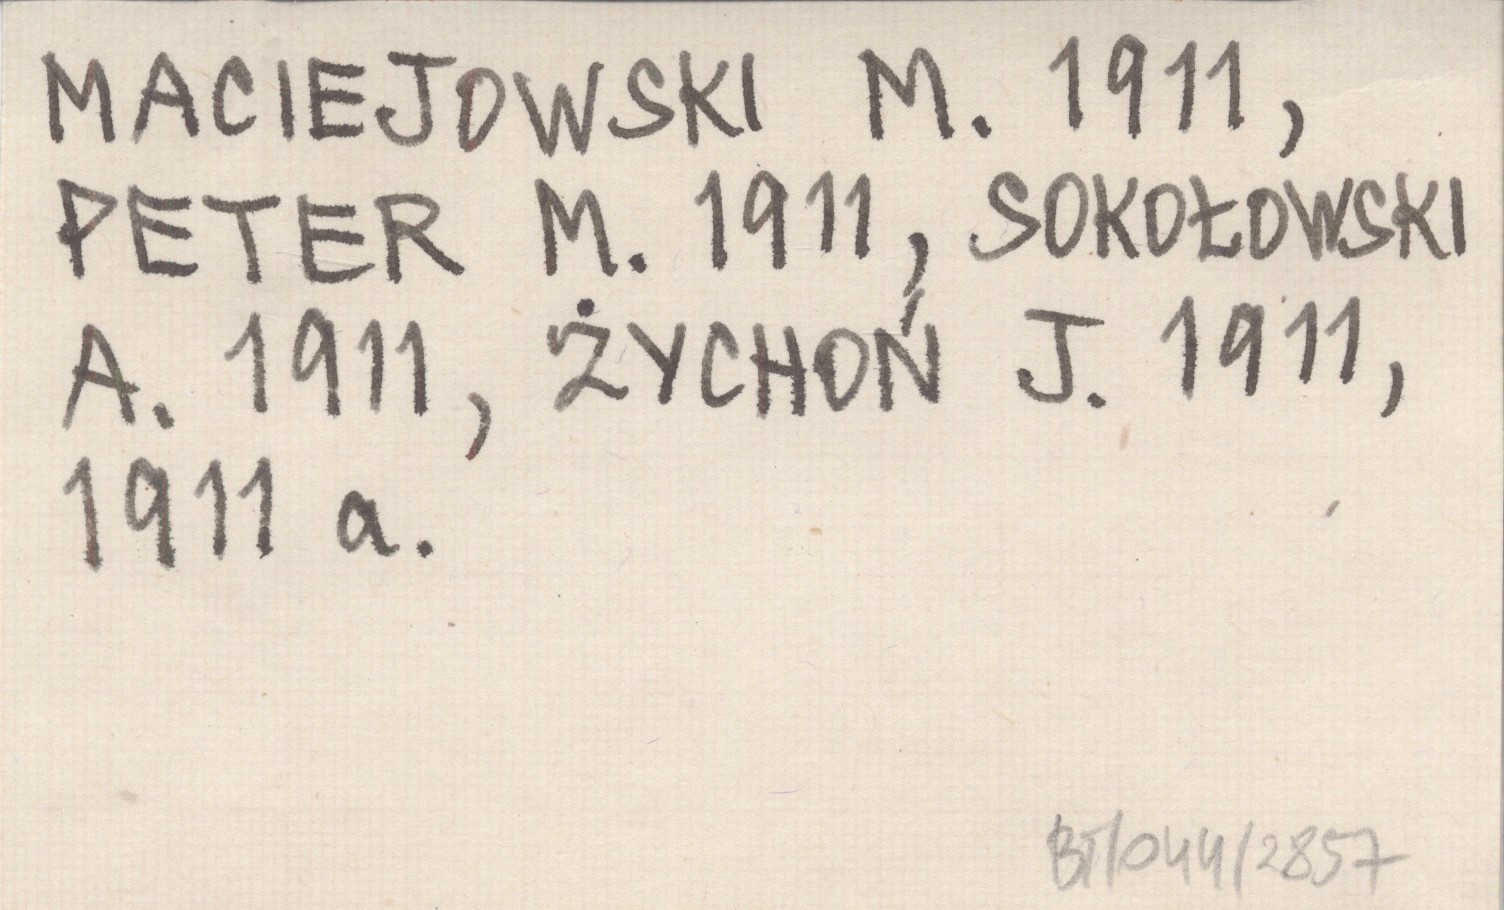 MACIEJOWSKI M. 1911,
PETER M. 1911, SOKOŁOWSKI
A. 1911, ŻYCHOŃ J. 1911,
1911 a.
BŁ/044/2857